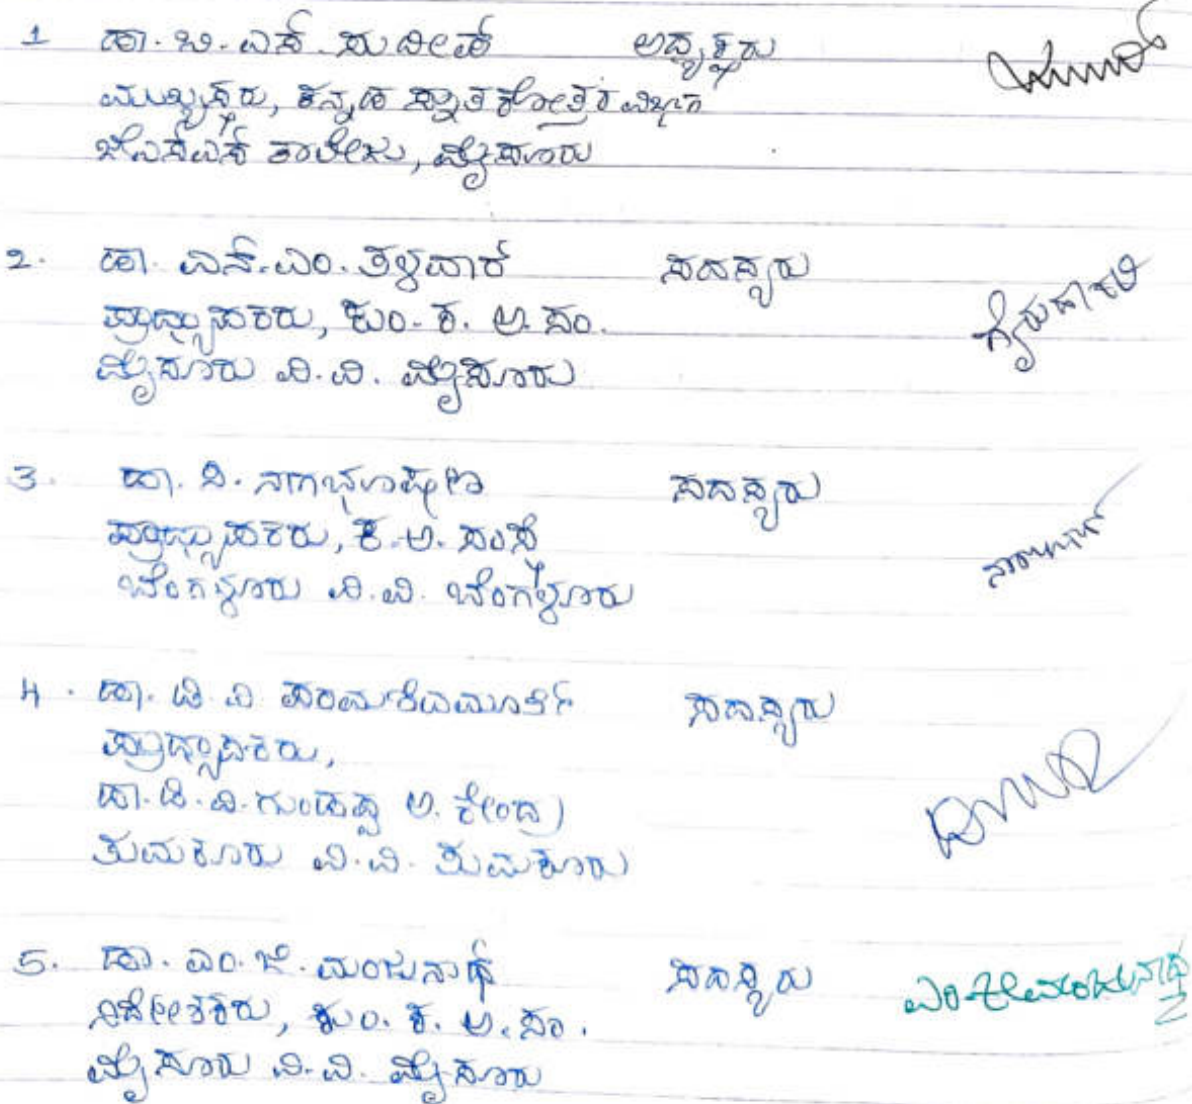 1 ಡಾ. ಬಿ. ಎಸ್. ಸುದೀಪ್ ಅಧ್ಯಕ್ಷರು
ಮುಖ್ಯಸ್ಥರು, ಕನ್ನಡ ಸ್ನಾತಕೋತ್ತರ ವಿಭಾಗ
ಜೆಎಸ್ಎಸ್ ಕಾಲೇಜು, ಮೈಸೂರು
2. ಡಾ. ಎನ್. ಎಂ. ತಳವಾರ್ ಸದಸ್ಯರು
ಪ್ರಾಧ್ಯಾಪಕರು, ಕುಂ. ಕ. ಅ. ಸಂ.
ಮೈಸೂರು ವಿ. ವಿ. ಮೈಸೂರು
3. ಡಾ. ಸಿ. ನಾಗಭೂಷಣ ಸದಸ್ಯರು
ಪ್ರಾಧ್ಯಾಪಕರು, ಕ. ಅ. ಸಂಸ್ಥೆ
ಬೆಂಗಳೂರು ವಿ. ವಿ. ಬೆಂಗಳೂರು
4. ಡಾ. ಡಿ. ವಿ. ಪರಮಶಿವಮೂರ್ತಿ ಸದಸ್ಯರು
ಪ್ರಾಧ್ಯಾಪಕರು,
ಡಾ. ಡಿ. ವಿ. ಗುಂಡಪ್ಪ ಅ. ಕೇಂದ್ರ
ತುಮಕೂರು ವಿ. ವಿ. ತುಮಕೂರು
5. ಡಾ. ಎಂ. ಜೆ. ಮಂಜುನಾಥ್ ಸದಸ್ಯರು ಎಂ.ಜೆ.ಮಂಜುನಾಥ
ನಿರ್ದೇಶಕರು, ಕುಂ. ಕ. ಅ. ಸಂ.
ಮೈಸೂರು ವಿ. ವಿ. ಮೈಸೂರು